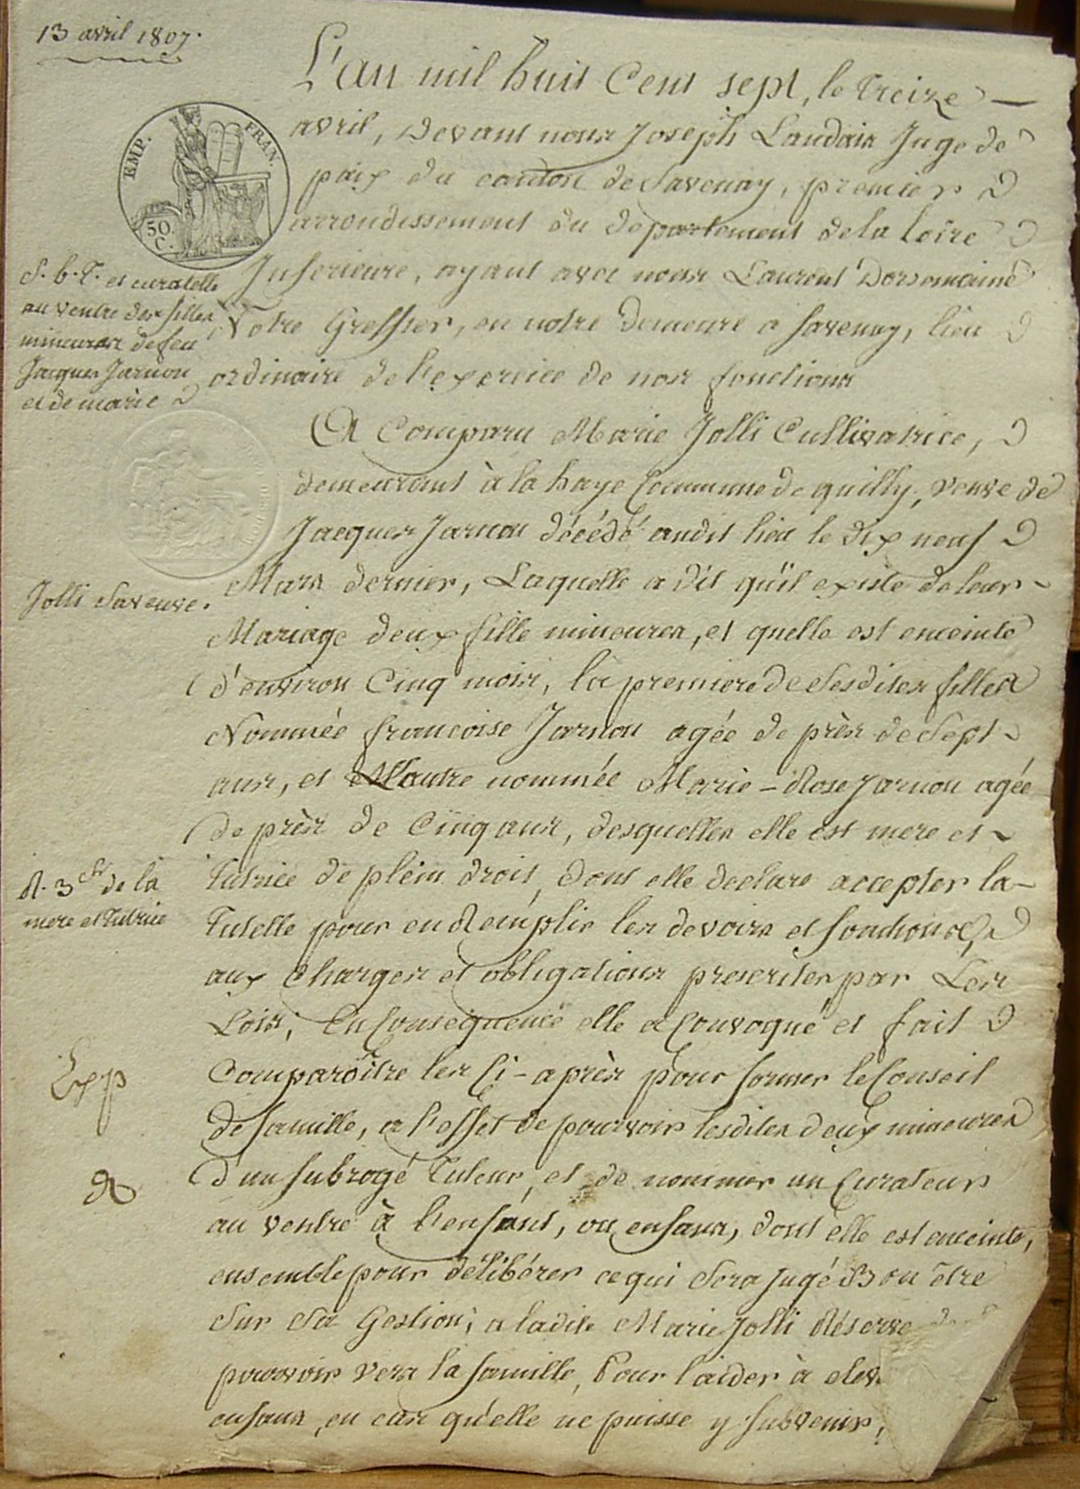 13 avril 1807.
L'an mil huit Cent sept, le treize
avril, Devant nous Joseph Landais Juge de
paix du canton de Savenay, premier
arrondissement du département de la Loire
Inferieure, ayant avec nous Laurent Dorsemaine
Notre Greffier, en notre demeure a Savenay, lieu
ordinaire de l'exercice de nos fonctions
EMP. FRAN.
50. C.
S. b. T. et curatelle
au ventre des filles
mineures de feu
Jacques Jarnou
et de marie
Jolli Sa veuve.
A Comparu Marie Jolli Cultivatrice,
demeurant à la haye Commune de quilly, veuve de
Jacques Jarnou décédé audit lieu le dix neuf
Mars dernier, Laquelle a dit qu'il existe de leur
Mariage deux fille mineures, et quelle est enceinte
d'environ Cinq mois, la premiere de Sesdites filles
Nommée francoise Jarnou agée de près de Sept
ans, et L'autre nommée Marie-Rose Jarnou agée
de près de Cinq ans, desquelles elle est mere et
tutrice de plein droit, dont elle declare accepter la
Tutelle pour en Remplir les devoirs et fonctions,
aux Charges et obligations prescrites par Les
Loix; En Consequence elle a Convoqué et fait
Comparoître les Ci-après pour former le Conseil
de famille, a l'effet de pourvoir lesdites deux mineures
d'un Subrogé Tuteur, et de nommer un Curateur
au ventre à l'enfant, ou enfans, dont elle est enceinte,
ensemble pour délibérer ce qui Sera Jugé Bon être
Sur Sa Gestion; a ladite Marie Jolli Réserve
pourvoir vers la famille, Pour l'aider à elev
enfans, en cas qu'elle ne puisse y Subvenir,
R. 3 de la
mere et tutrice
Exp
R